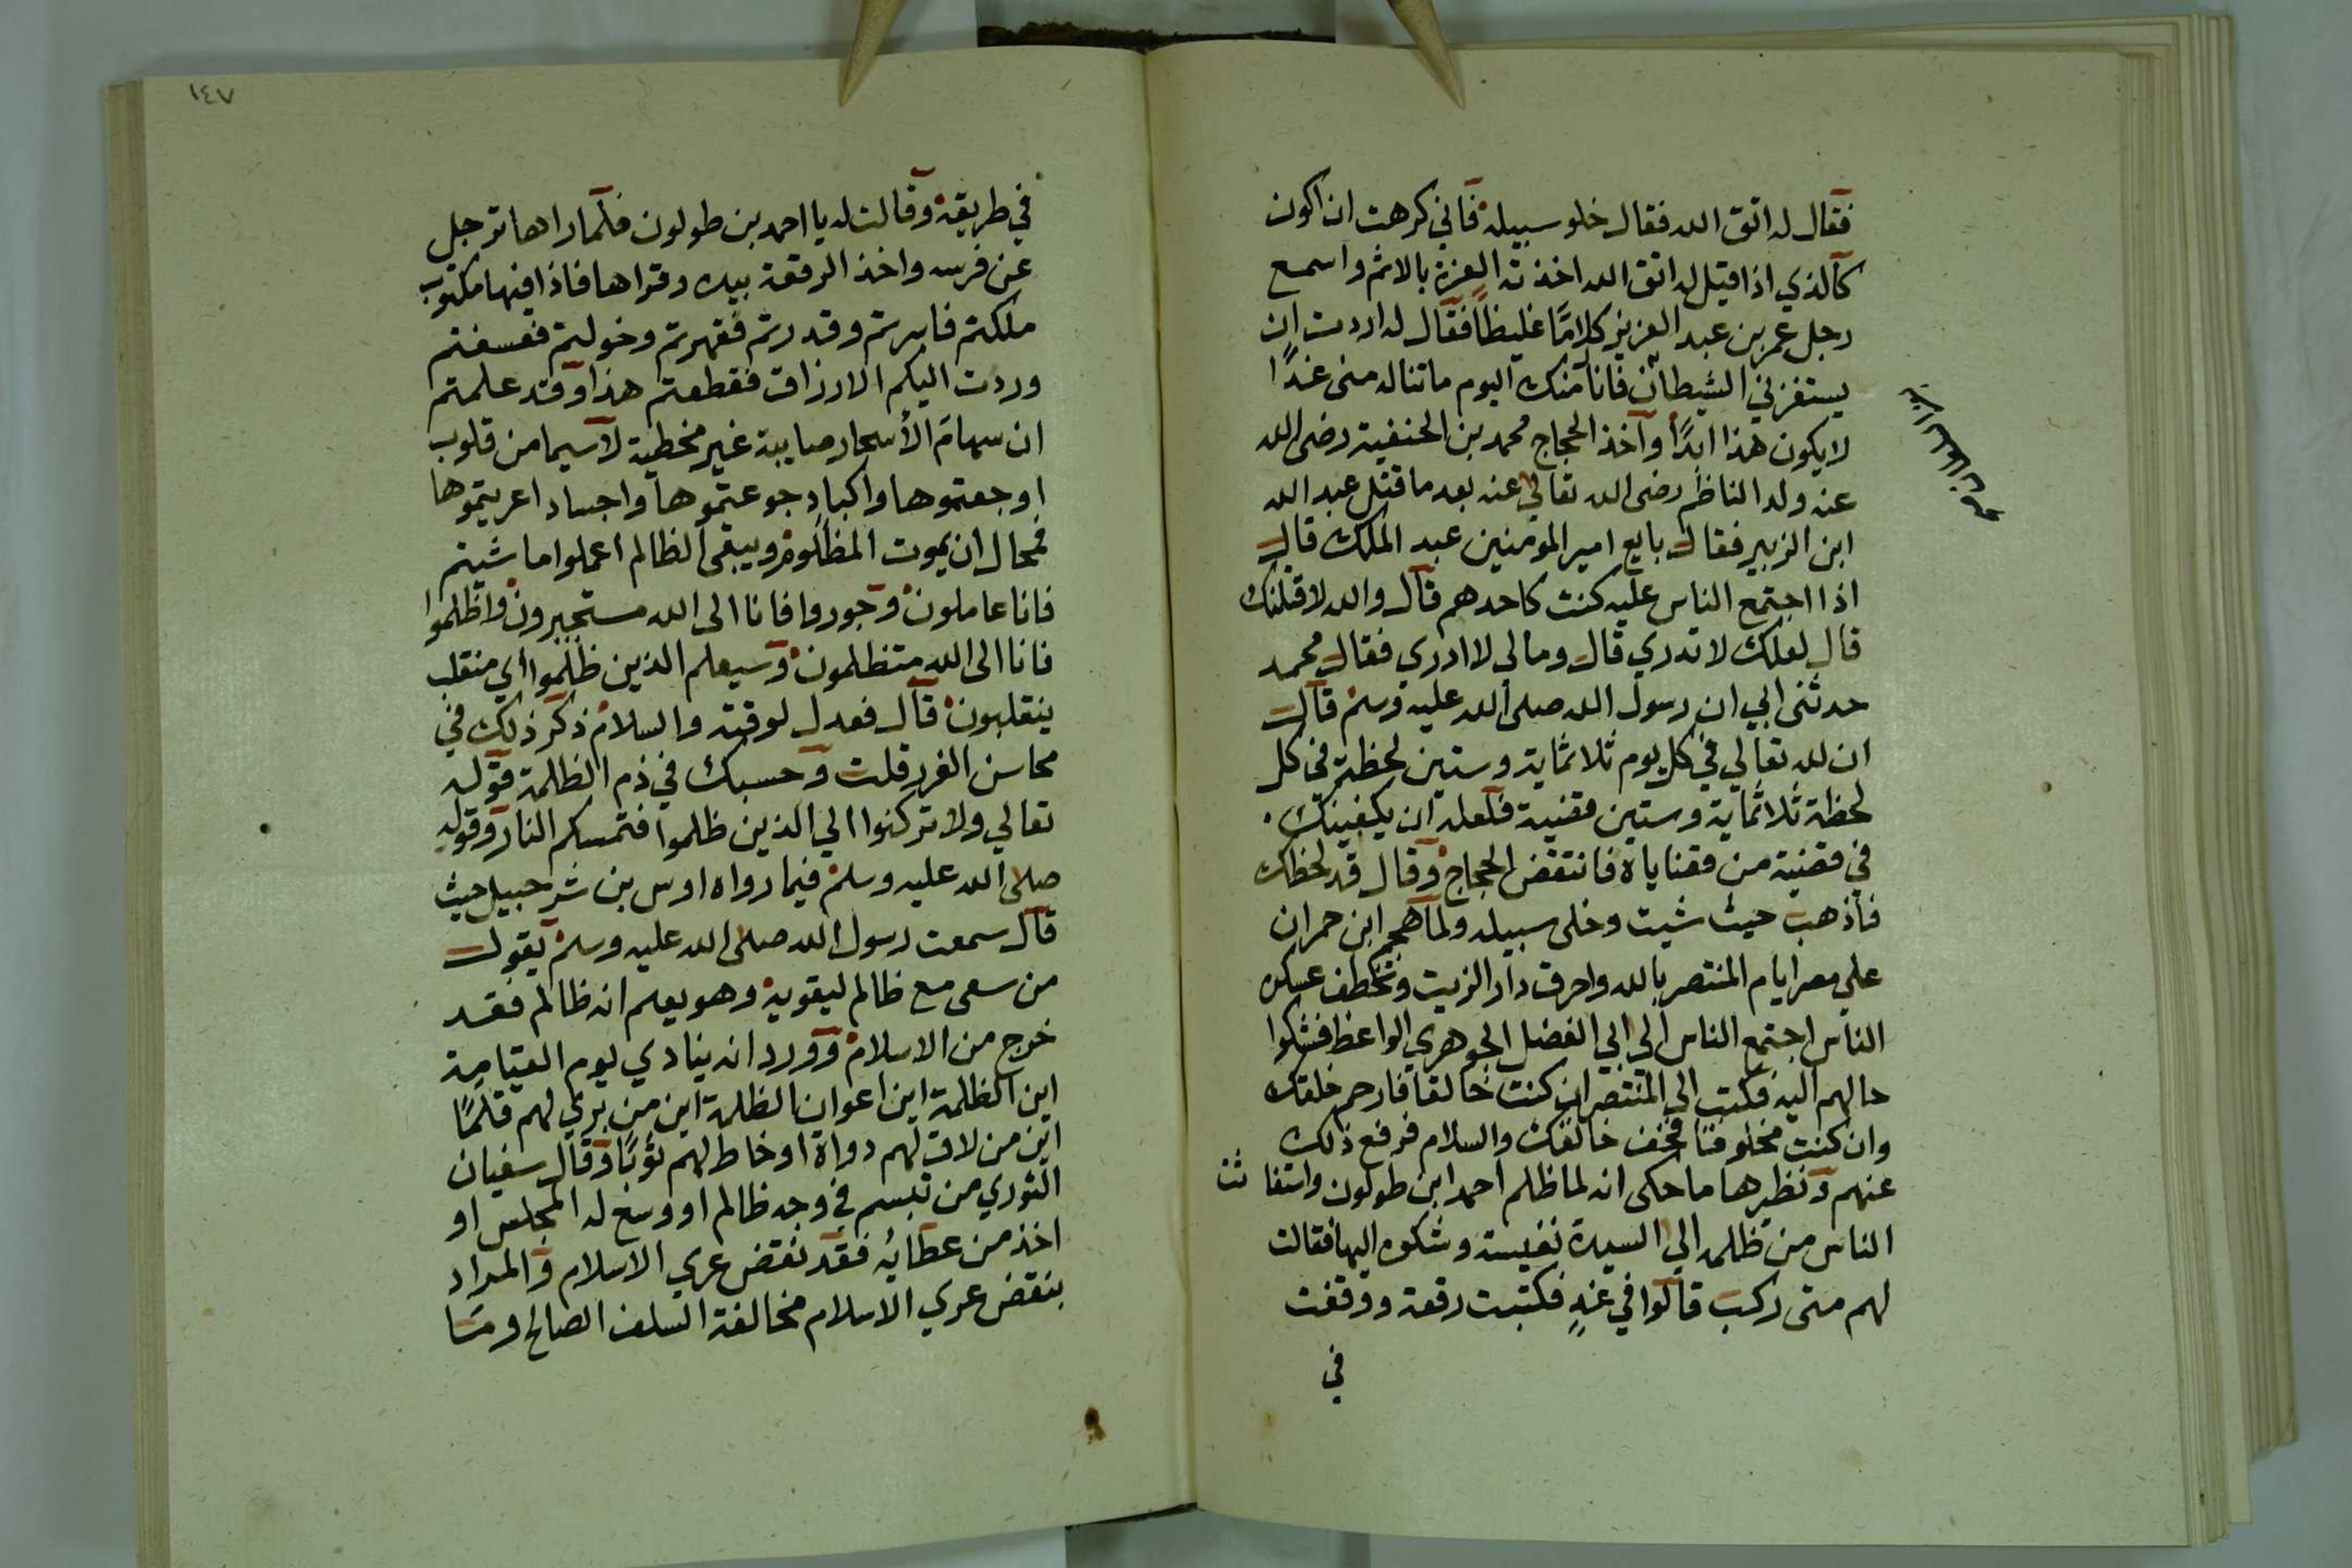 فقال له اتق الله فقال خلو سبيله فاني كرهت ان اكون
كالذي اذا قيل له اتق الله اخذته العزة بالاثم واسمع
رجل عمر بن عبد العزيز كلامًا غليظًا فقال له اردت ان
يستفزني الشيطان فانا منك اليوم ما تناله مني غدًا
لا يكون هذا ابدًا واخذ الحجاج محمد بن الحنفية رضى الله
عنه ولد الناظم رضى الله تعالي عنه بعد ما قتل عبد الله
ابن الزبير فقال بايع امير المومنين عبد الملك قال
اذا اجتمع الناس عليه كنت كاحدهم قال والله لاقتلنك
قال لعلك لا تدري قال وما لي لا ادري فقال محمد
حدثنى ابي ان رسول الله صلى الله عليه وسلم قال
ان لله تعالي في كل يوم ثلاثماية وستين لحظة في كل
لحظة ثلاثماية وستين قضية فلعله ان يكفينك
في قضية من قضاياه فانتفض الحجاج وقال قد لحظك
فاذهب حيث شيت وخلى سبيله ولما هجم ابن حمران
علي مصر ايام المنتصر بالله واحرق دار الزيت وتخطف عسكره
الناس اجتمع الناس الي ابي الفضل الجوهري الواعظ فشكوا
حالهم اليه فكتب الي المنتصر ان كنت خالقا فارحم خلقك
وان كنت مخلوقا فخف خالقك والسلام فرفع ذلك
عنهم ونظيرها ما حكى انه لما ظلم احمد ابن طولون واستغاثت
الناس من ظلمه الي السيدة نفيسة وشكوه اليها فقالت
لهم متى ركب قالوا في غدٍ فكتبت رقعة ووقفت
في
١٤٧
في طريقه وقالت له يا احمد بن طولون فلما راها ترجل
عن فرسه واخذ الرقعة بيده وقراها فاذا فيها مكتوب
ملكتم فاسرتم وقدرتم فقهرتم وخولتم فعسفتم
وردت اليكم الارزاق فقطعتم هذا وقد علمتم
ان سهام الأسحار صايبة غير مخطية لاسيما من قلوب
اوجعتموها واكباد جوعتموها واجساد اعريتموها
فمحال ان يموت المظلوم ويبقى الظالم اعملوا ما شيتم
فانا عاملون وجوروا فانا الى الله مستجيرون واظلموا
فانا الى الله متظلمون وسيعلم الذين ظلموا اي منقلب
ينقلبون قال فعدل لوقته والسلام ذكر ذلك في
محاسن الغرر قلت وحسبك في ذم الظلمة قوله
تعالي ولا تركنوا الي الذين ظلموا فتمسكم النار وقوله
صلى الله عليه وسلم فيما رواه اوس بن شرحبيل حيث
قال سمعت رسول الله صلى الله عليه وسلم يقول
من سعى مع ظالم ليقويه وهو يعلم انه ظالم فقد
خرج من الاسلام وورد انه ينادي يوم القيامة
اين الظلمة اين اعوان الظلمة اين من بري لهم قلمًا
اين من لاق لهم دواة او خاط لهم ثوبًا وقال سفيان
الثوري من تبسم في وجه ظالم او وسع له المجلس او
اخذ من عطائه فقد نقض عري الاسلام والمراد
بنقض عري الاسلام مخالفة السلف الصالح ومسا